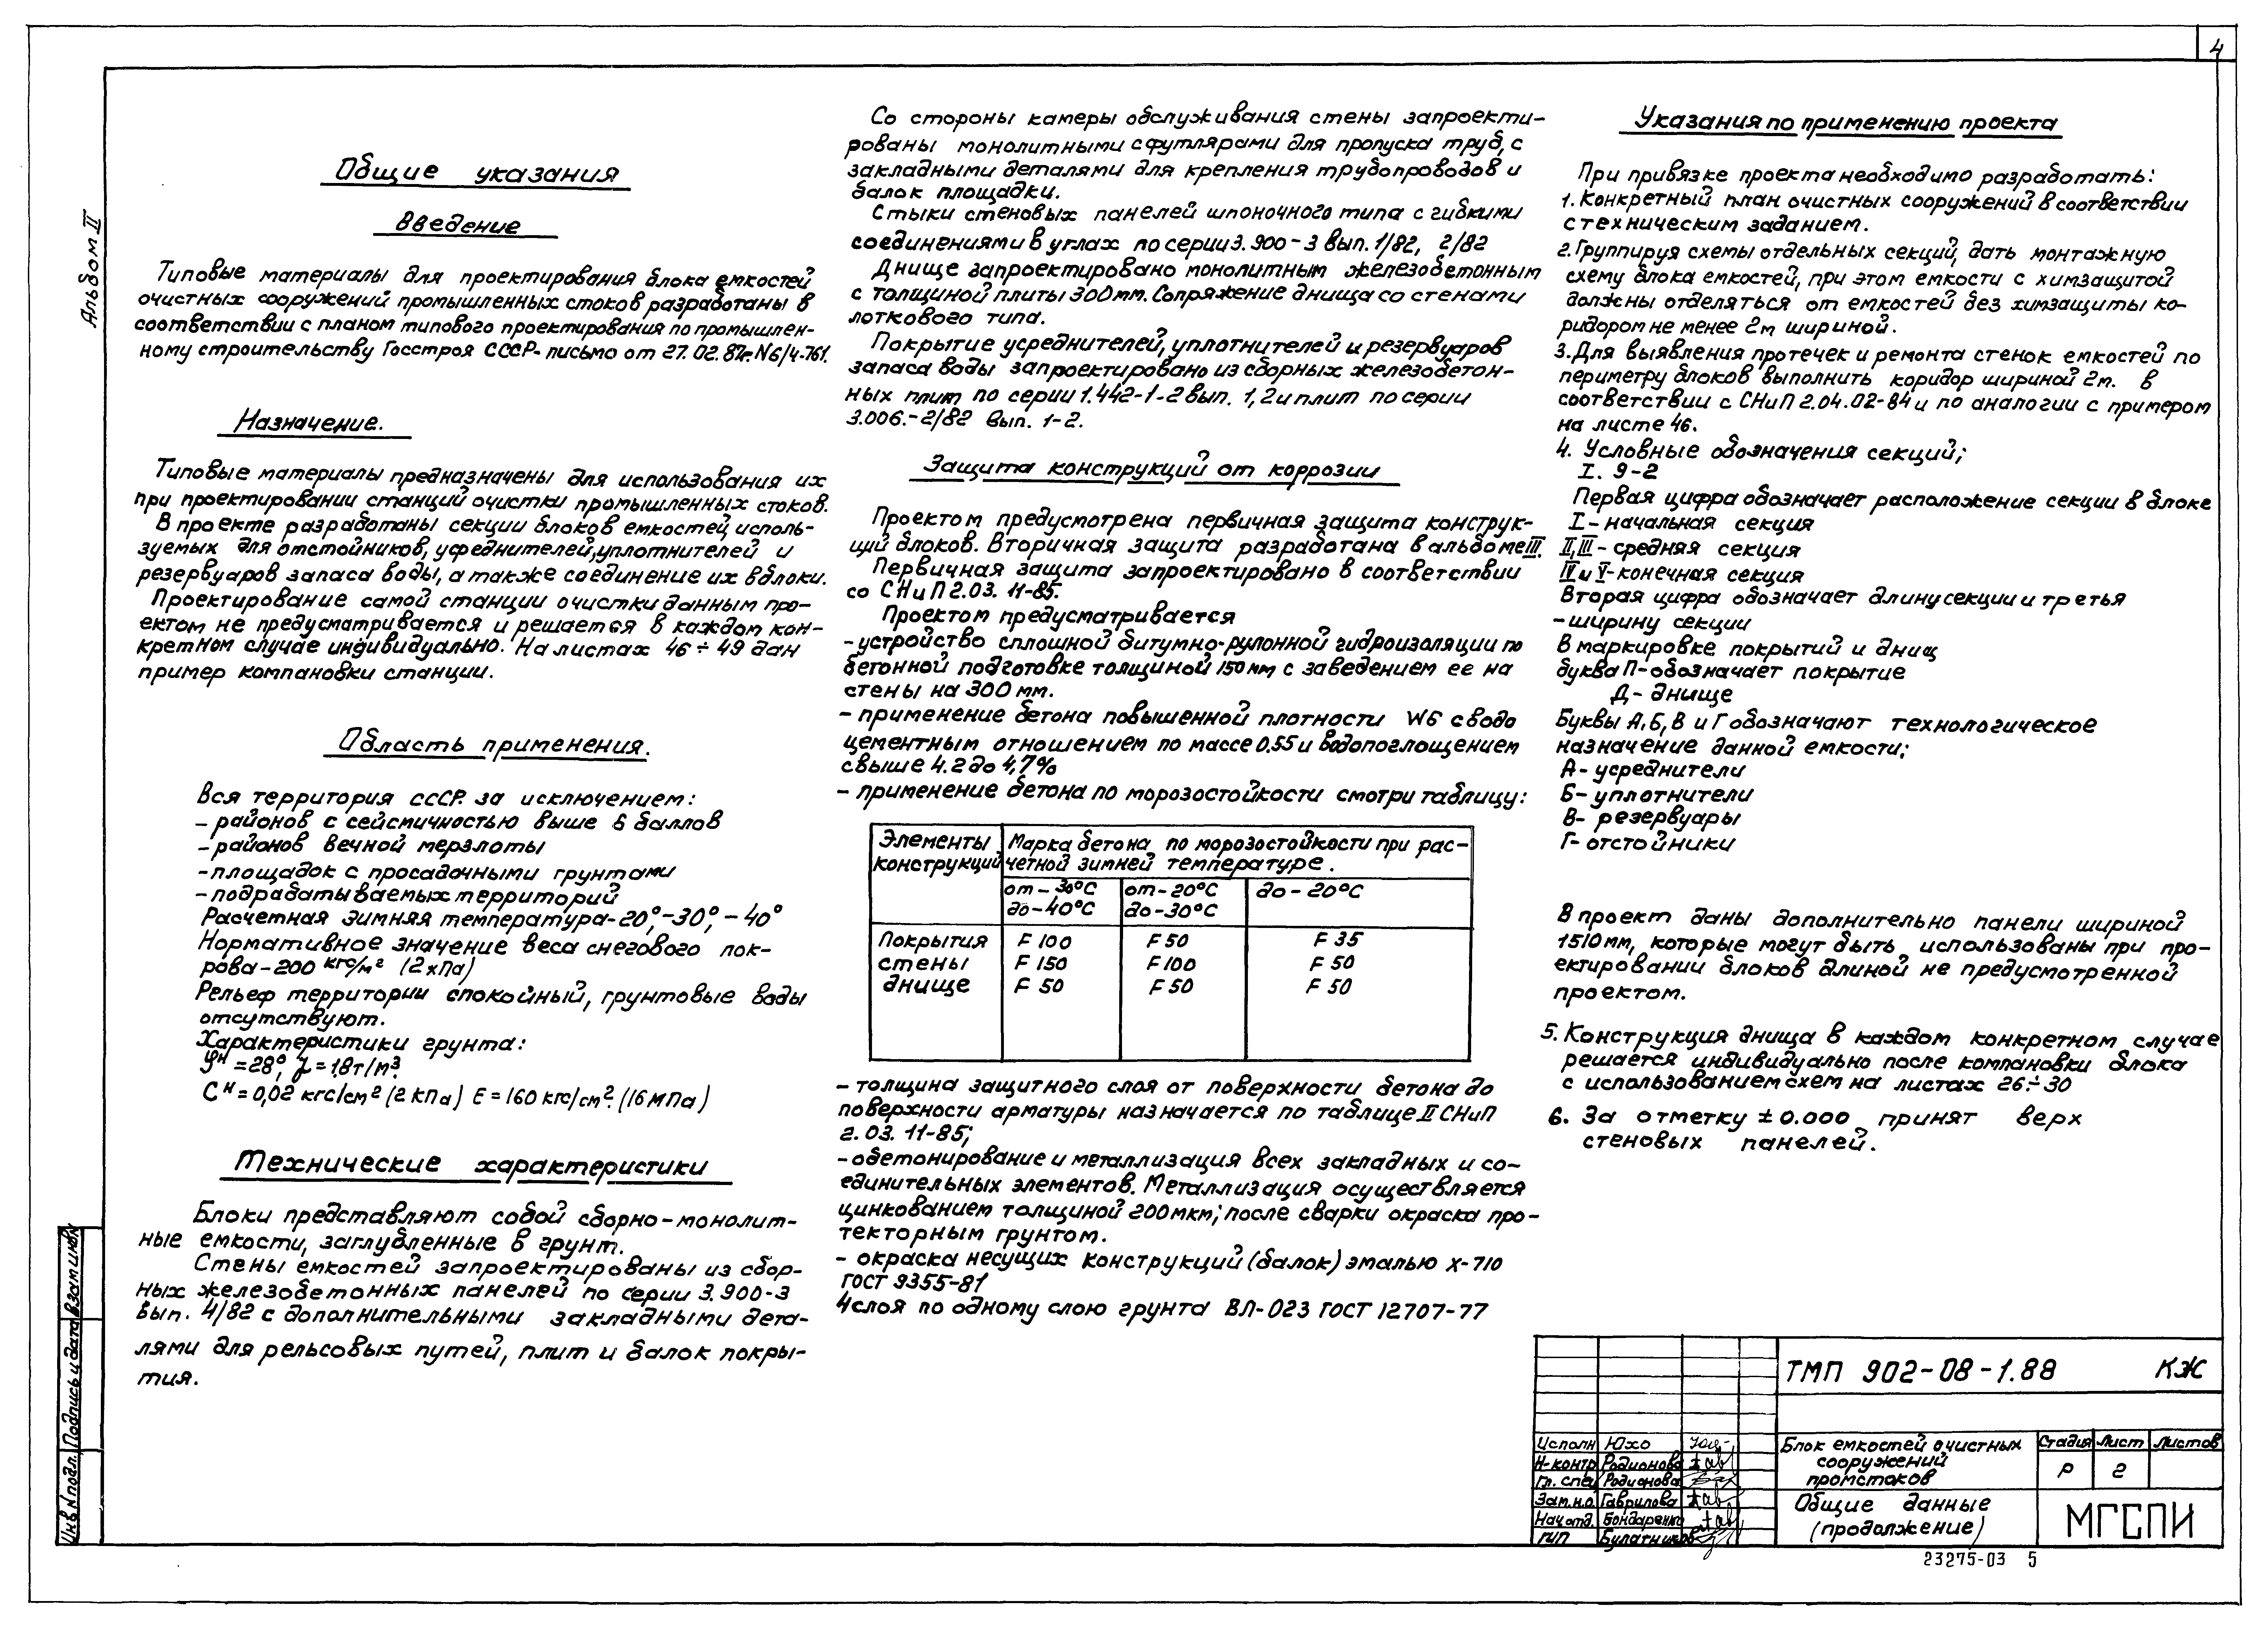 4
Альбом II
Общие указания
Введение
Типовые материалы для проектирования блока емкостей
очистных сооружений промышленных стоков разработаны в
соответствии с планом типового проектирования по промышлен-
ному строительству Госстроя СССР- письмо от 27.02.87г. N6/4-761.
Назначение.
Типовые материалы предназначены для использования их
при проектировании станций очистки промышленных стоков.
В проекте разработаны секции блоков емкостей, исполь-
зуемых для отстойников, усреднителей, уплотнителей и
резервуаров запаса воды, а также соединение их в блоки.
Проектирование самой станции очистки данным про-
ектом не предусматривается и решается в каждом кон-
кретном случае индивидуально. На листах 46÷49 дан
пример компановки станции.
Область применения.
Вся территория СССР за исключением:
- районов с сейсмичностью выше 6 баллов
- районов вечной мерзлоты
- площадок с просадочными грунтами
- подрабатываемых территорий
Расчетная зимняя температура-20°,-30°,-40°
Нормативное значение веса снегового пок-
рова-200 кгс/м² (2кПа)
Рельеф территории спокойный, грунтовые воды
отсутствуют.
Характеристики грунта:
φн=28°, γ=1,8т/м³.
Cн=0,02 кгс/см² (2 кПа) E=160 кгс/см². (16 МПа)
Технические характеристики
Блоки представляют собой сборно-монолит-
ные емкости, заглубленные в грунт.
Стены емкостей запроектированы из сбор-
ных железобетонных панелей по серии 3.900-3
вып. 4/82 с дополнительными закладными дета-
лями для рельсовых путей, плит и балок покры-
тия.
Со стороны камеры обслуживания стены запроекти-
рованы монолитными с футлярами для пропуска труб, с
закладными деталями для крепления трубопроводов и
балок площадки.
Стыки стеновых панелей шпоночного типа с гибкими
соединениями в углах по серии 3.900-3 вып. 1/82, 2/82
Днище запроектировано монолитным железобетонным
с толщиной плиты 300мм. Сопряжение днища со стенами
лоткового типа.
Покрытие усреднителей, уплотнителей и резервуаров
запаса воды запроектировано из сборных железобетон-
ных плит по серии 1.442-1-2 вып. 1,2 и плит по серии
3.006.-2/82 вып. 1-2.
Защита конструкций от коррозии
Проектом предусмотрена первичная защита конструк-
ций блоков. Вторичная защита разработана в альбоме III.
Первичная защита запроектировано в соответствии
со СНиП 2.03. 11-85.
Проектом предусматривается
- устройство сплошной битумно-рулонной гидроизоляции по
бетонной подготовке толщиной 150мм с заведением ее на
стены на 300мм.
- применение бетона повышенной плотности W6 с водо
цементным отношением по массе 0.55 и водопоглощением
свыше 4.2 до 4,7%
- применение бетона по морозостойкости смотри таблицу:
Элементы конструкций
Марка бетона по морозостойкости при рас-
четной зимней температуре.
от-30°С до-40°С
от-20°С до-30°С
до-20°С
Покрытия F 100 F 50 F 35
стены F 150 F 100 F 50
днище F 50 F 50 F 50
- толщина защитного слоя от поверхности бетона до
поверхности арматуры назначается по таблице II СНиП
2.03. 11-85;
- обетонирование и металлизация всех закладных и со-
единительных элементов. Металлизация осуществляется
цинкованием толщиной 200мкм; после сварки окраска про-
текторным грунтом.
- окраска несущих конструкций (балок) эмалью Х-710
ГОСТ 9355-81
4слоя по одному слою грунта ВЛ-023 ГОСТ 12707-77
Указания по применению проекта
При привязке проекта необходимо разработать:
1. Конкретный план очистных сооружений в соответствии
с техническим заданием.
2. Группируя схемы отдельных секций, дать монтажную
схему блока емкостей, при этом емкости с химзащитой
должны отделяться от емкостей без химзащиты ко-
ридором не менее 2м шириной.
3. Для выявления протечек и ремонта стенок емкостей по
периметру блоков выполнить коридор шириной 2м. в
соответствии с СНиП 2.04.02-84 и по аналогии с примером
на листе 46.
4. Условные обозначения секций;
I. 9-2
Первая цифра обозначает расположение секции в блоке
I-начальная секция
II,III- средняя секция
IV и V-конечная секция
Вторая цифра обозначает длину секции и третья
- ширину секции
В маркировке покрытий и днищ
буква П-обозначает покрытие
Д- днище
Буквы А, Б, В и Г обозначают технологическое
назначение данной емкости;
А- усреднители
Б- уплотнители
В- резервуары
Г- отстойники
В проект даны дополнительно панели шириной
1510мм, которые могут быть использованы при про-
ектировании блоков длиной не предусмотренной
проектом.
5. Конструкция днища в каждом конкретном случае
решается индивидуально после компановки блока
с использованием схем на листах 26÷30
6. За отметку ±0.000 принят верх
стеновых панелей.
Инв N подл. Подпись и дата Взам инв N
ТМП 902-08-1.88 КЖ
Исполн Юхо
Н-контр Родионова
Гл. спец Родионова
Зам.н.о. Гаврилова
Нач отд. Бондаренко
ГИП Булатников
Блок емкостей очистных
сооружений
промстоков
Стадия Лист Листов
Р 2
Общие данные
(продолжение)
МГСПИ
23275-03 5